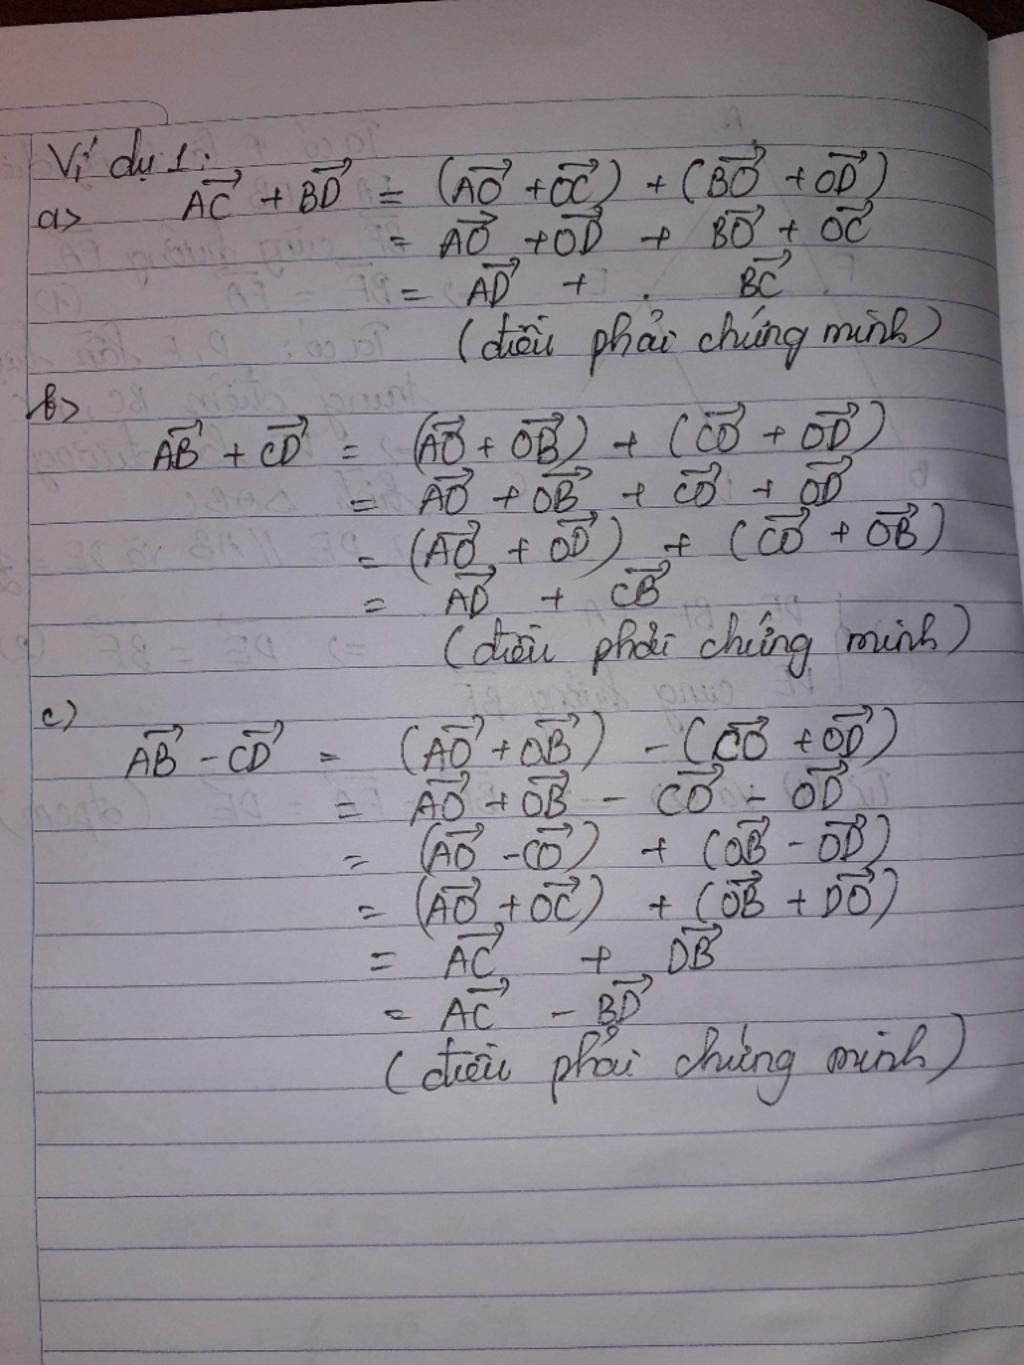 Ví dụ 1:
a> AC⃗ + BD⃗ = (AO⃗ + OC⃗) + (BO⃗ + OD⃗)
= AO⃗ + OD⃗ + BO⃗ + OC⃗
= AD⃗ + BC⃗
(điều phải chứng minh)
b>
AB⃗ + CD⃗ = (AO⃗ + OB⃗) + (CO⃗ + OD⃗)
= AO⃗ + OB⃗ + CO⃗ + OD⃗
= (AO⃗ + OD⃗) + (CO⃗ + OB⃗)
= AD⃗ + CB⃗
(điều phải chứng minh)
c)
AB⃗ - CD⃗ = (AO⃗ + OB⃗) - (CO⃗ + OD⃗)
= AO⃗ + OB⃗ - CO⃗ - OD⃗
= (AO⃗ - CO⃗) + (OB⃗ - OD⃗)
= (AO⃗ + OC⃗) + (OB⃗ + DO⃗)
= AC⃗ + DB⃗
= AC⃗ - BD⃗
(điều phải chứng minh)